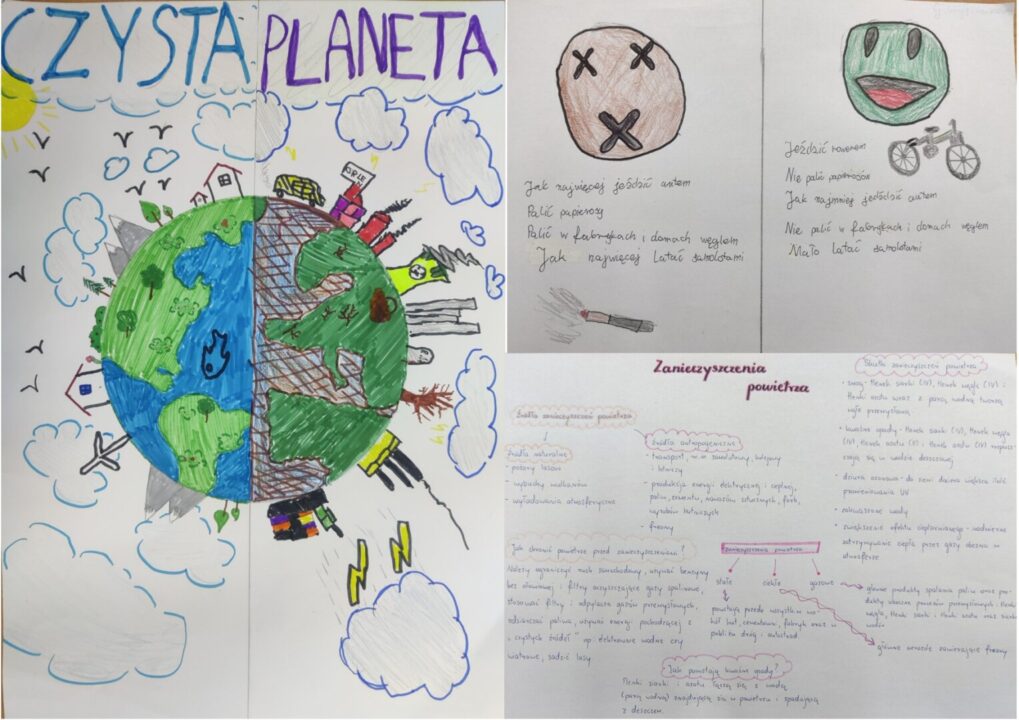 CZYSTA PLANETA
Jak najwięcej jeździć autem
Palić papierosy
Palić w fabrykach i domach węglem
Jak najwięcej latać samolotami
Jeździć rowerem
Nie palić papierosów
Jak najmniej jeździć autem
Nie palić w fabrykach i domach węglem
Mało latać samolotami
Zanieczyszczenia
powietrza
Źródła zanieczyszczeń powietrza
Źródła naturalne
- pożary lasów
- wybuchy wulkanów
- wyładowania atmosferyczne
Źródła antropogeniczne
- transport, w.w samolotowy, kolejowy
i lotniczy
- produkcja energii elektrycznej i cieplnej,
paliw, cementu, nawozów sztucznych, farb,
wyrobów hutniczych
- freony
Skutki zanieczyszczeń powietrza
- smog - tlenek siarki (IV), tlenek węgla (IV) i
tlenki azotu wraz z parą wodną tworzą
mgłę przemysłową
- kwaśne opady - tlenek siarki (IV), tlenek węgla
(IV), tlenek azotu
szczają się w wodzie deszczowej
- dziura ozonowa - do ziemi dociera większa ilość
promieniowania UV
- zakwaszone wody
- zwiększenie efektu cieplarnianego - nadmierne
zatrzymywanie ciepła przez gazy obecne w
atmosferze
Jak chronić powietrze przed zanieczyszczeniami?
Należy ograniczyć ruch samochodowy, używać benzyny
bez ołowiowej i filtry oczyszczające gazy spalinowe,
stosować filtry i odpylacze gazów przemysłowych,
odsiarczać paliwa, używać energii pochodzącej z
"czystych źródeł" np. elektrownie wodne czy
wiatrowe, sadzić lasy.
Zanieczyszczenia powietrza
stałe ciekłe gazowe
powstają przede wszystkim w
hut, cementowni, fabryk oraz w
pobliżu dróg i autostrad
główne produkty spalania paliw oraz pro-
dukty uboczne procesów przemysłowych: tlenki
węgla, tlenki siarki i tlenki azotu oraz
główne aerozole zawierające freony
Jak powstają kwaśne opady?
Tlenki siarki i azotu łączą się z wodą
(parą wodną) znajdującą się w powietrzu i spadają
z deszczem.